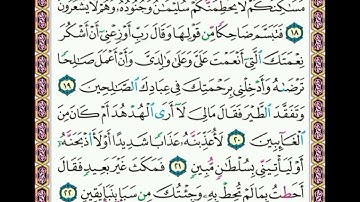 مَسَٰكِنَكُمْ لَا يَحْطِمَنَّكُمْ سُلَيْمَٰنُ وَجُنُودُهُۥ وَهُمْ لَا يَشْعُرُونَ
١٨ فَتَبَسَّمَ ضَاحِكًا مِّن قَوْلِهَا وَقَالَ رَبِّ أَوْزِعْنِىٓ أَنْ أَشْكُرَ
نِعْمَتَكَ ٱلَّتِىٓ أَنْعَمْتَ عَلَىَّ وَعَلَىٰ وَٰلِدَىَّ وَأَنْ أَعْمَلَ صَٰلِحًا
تَرْضَىٰهُ وَأَدْخِلْنِى بِرَحْمَتِكَ فِى عِبَادِكَ ٱلصَّٰلِحِينَ ١٩
وَتَفَقَّدَ ٱلطَّيْرَ فَقَالَ مَالِىَ لَآ أَرَى ٱلْهُدْهُدَ أَمْ كَانَ مِنَ
ٱلْغَآئِبِينَ ٢٠ لَأُعَذِّبَنَّهُۥ عَذَابًا شَدِيدًا أَوْ لَأَا۟ذْبَحَنَّهُۥٓ
أَوْ لَيَأْتِيَنِّى بِسُلْطَٰنٍ مُّبِينٍ ٢١ فَمَكَثَ غَيْرَ بَعِيدٍ فَقَالَ
أَحَطتُ بِمَا لَمْ تُحِطْ بِهِۦ وَجِئْتُكَ مِن سَبَإٍۭ بِنَبَإٍ يَقِينٍ ٢٢